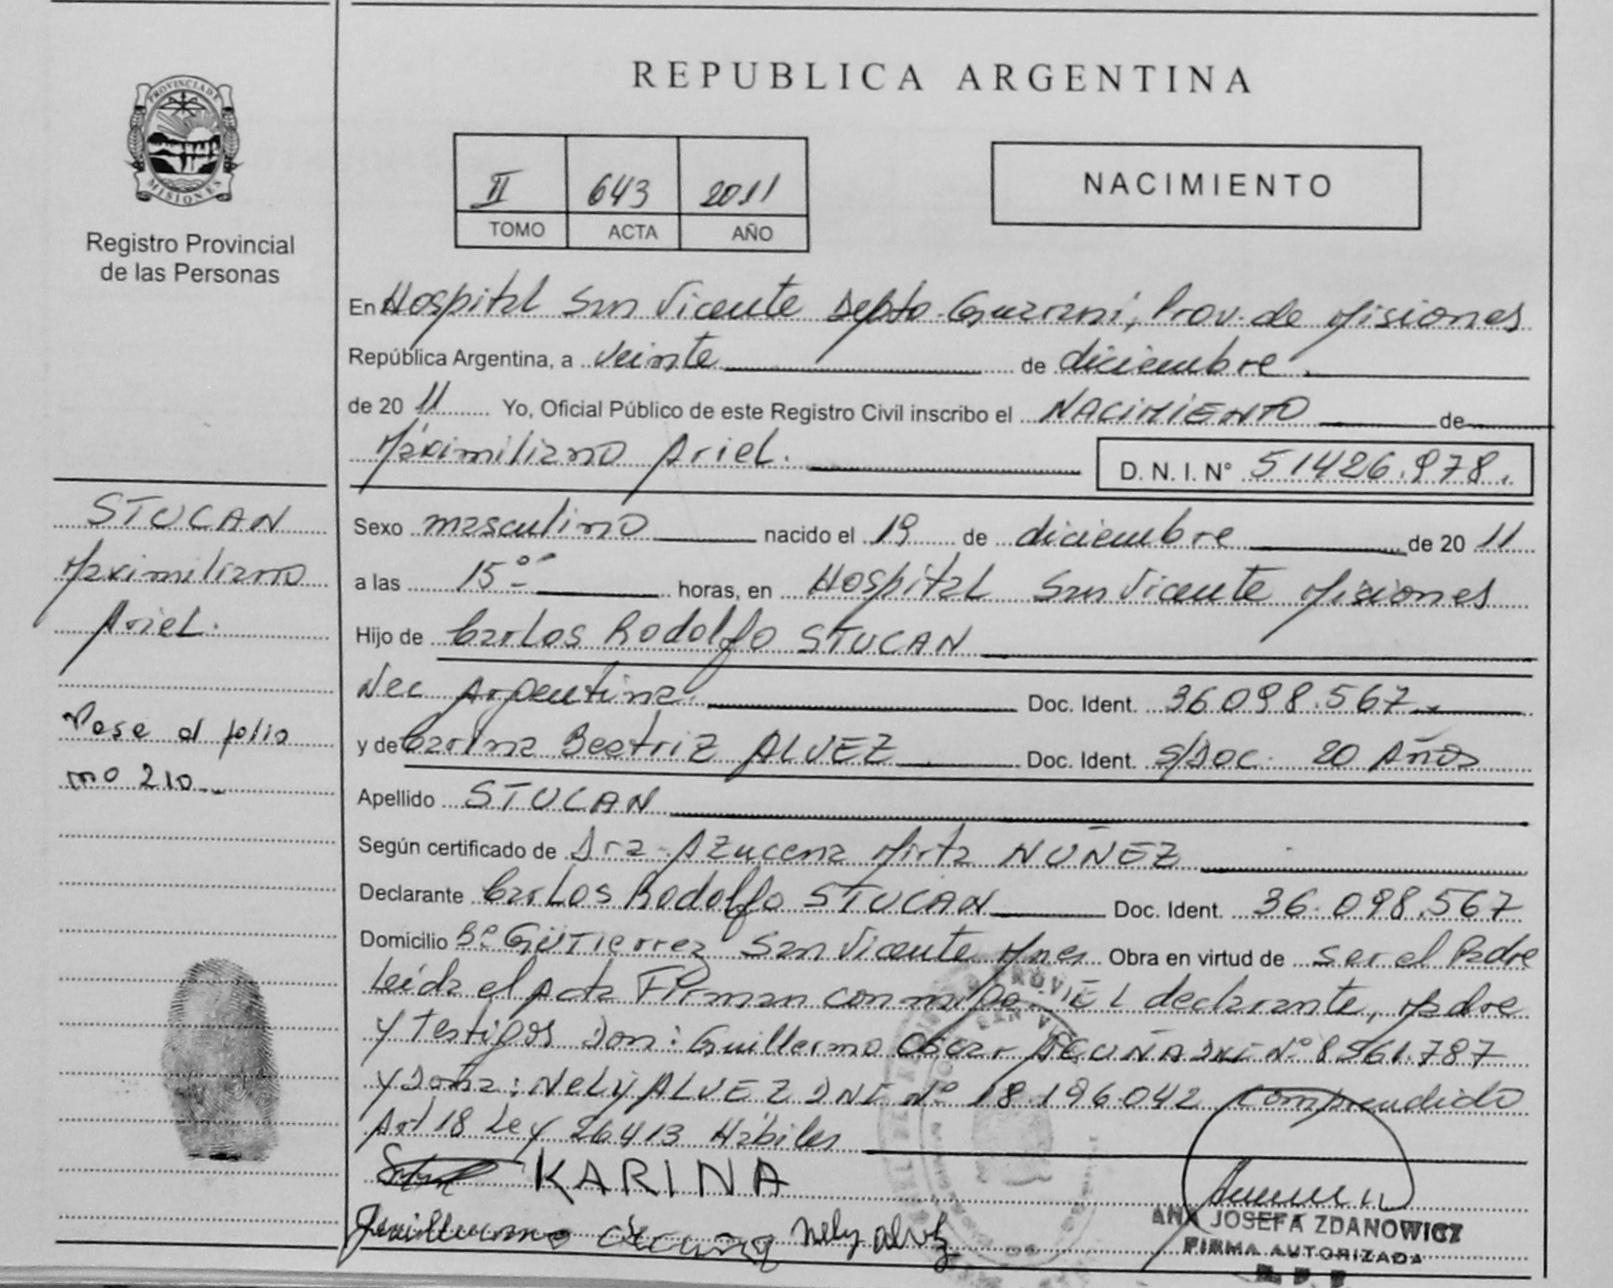 REPUBLICA ARGENTINA
PROVINCIA DE
MISIONES
Registro Provincial
de las Personas
II 643 2011
TOMO ACTA AÑO
NACIMIENTO
En Hospital San Vicente Depto. Guaraní, Prov. de Misiones
República Argentina, a veinte de diciembre
de 20 11 Yo, Oficial Público de este Registro Civil inscribo el NACIMIENTO de
Máximiliano Ariel. D. N. I. N° 51426.978.
STUCAN
Maximiliano
Ariel.
Pase al folio
no 210
Sexo masculino nacido el 19 de diciembre de 20 11
a las 15°° horas, en Hospital San Vicente Misiones
Hijo de Carlos Rodolfo STUCAN
Nac Argentina. Doc. Ident. 36098.567
y de Carina Beatriz ALVEZ Doc. Ident. S/Doc. 20 Años
Apellido STUCAN
Según certificado de Dra. Azucena Mirta NUÑEZ
Declarante Carlos Rodolfo STUCAN Doc. Ident. 36.098.567
Domicilio B° Gutierrez San Vicente Mnes Obra en virtud de ser el Padre
Leída el Acta Firman conmigo EL declarante, Madre
y Testigos Don: Guillermo Oscar ACUÑA DNI N° 8561.787
y Doña: NELY ALVEZ DNI N° 18.196.042 comprendido
Art 18 Ley 26413 Hábiles
KARINA
Guillermo Nely alvez
ANA JOSEFA ZDANOWICZ
FIRMA AUTORIZADA